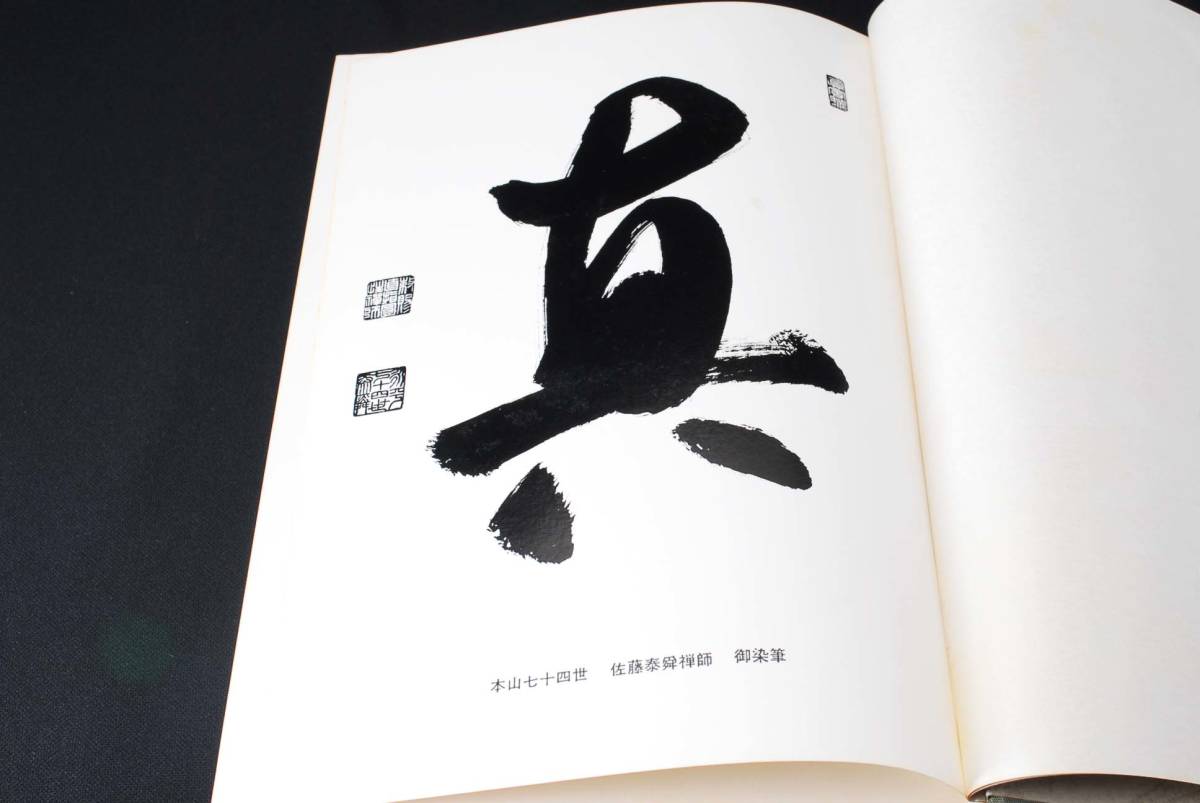 真
本山七十四世 佐藤泰舜禅師 御染筆